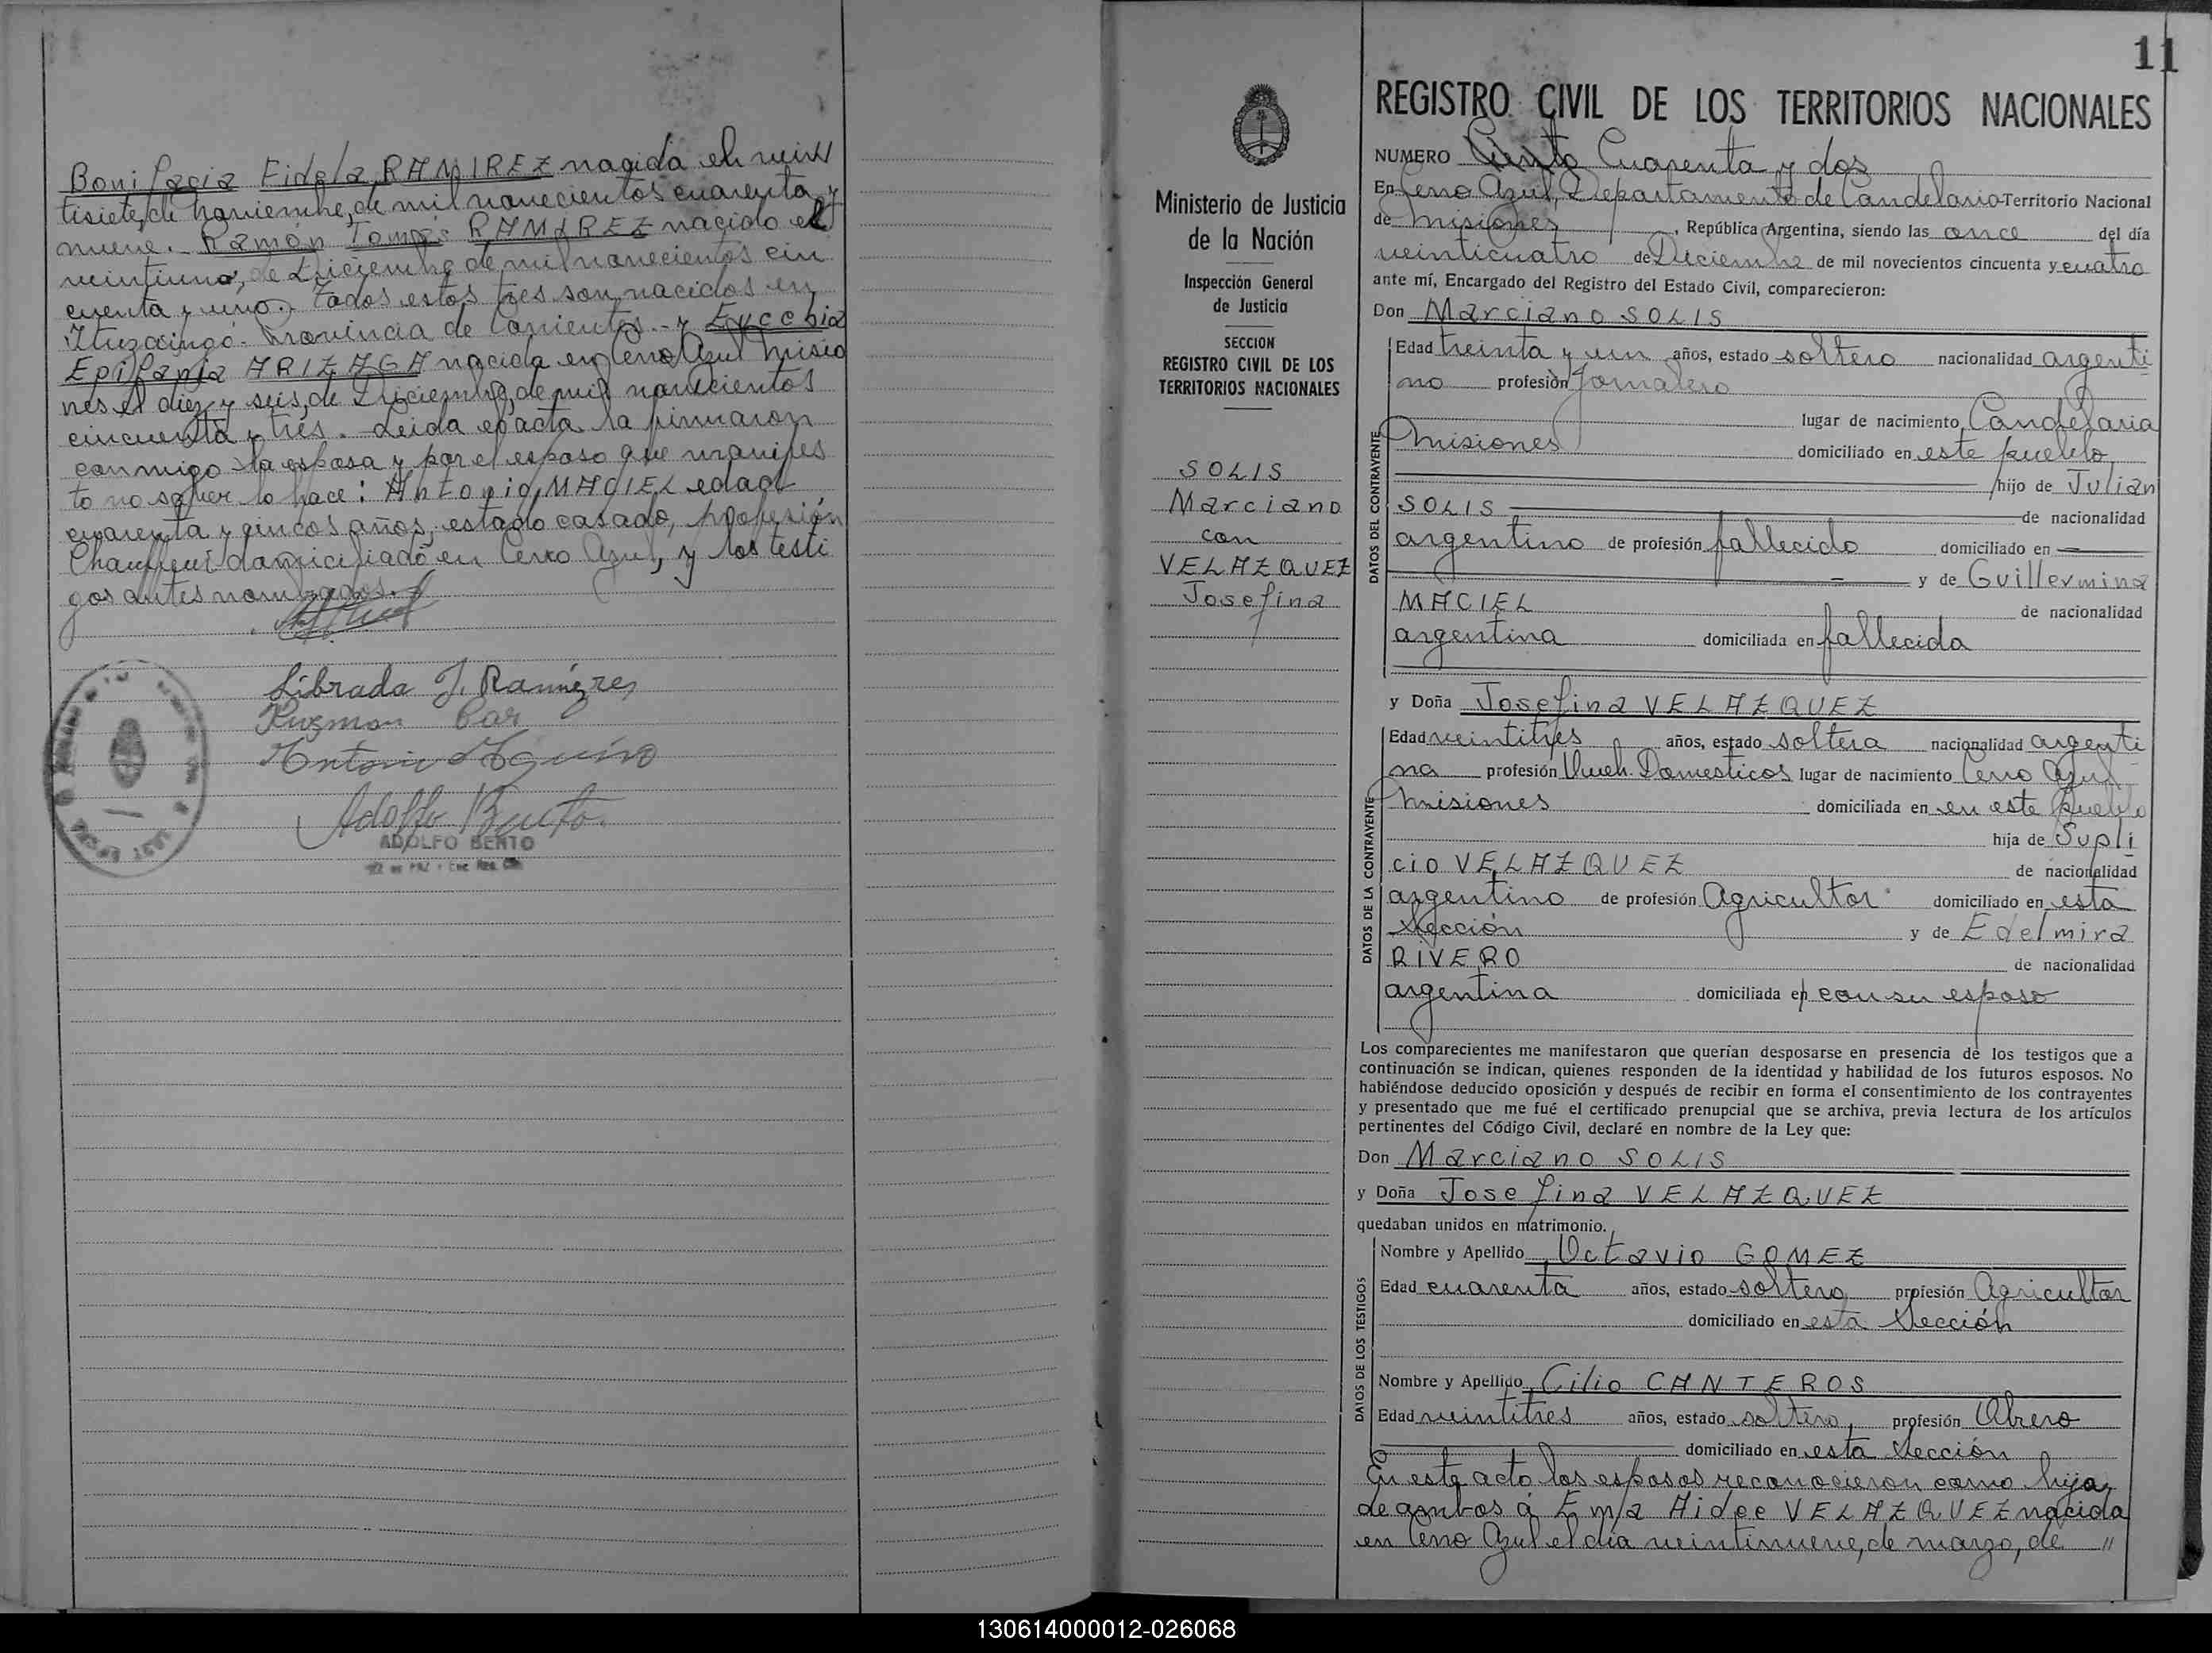 Bonifacia Fidela RAMIREZ nacida el vein
tisiete, de noviembre, de mil novecientos cuarenta y
nueve. Ramón Tomás RAMIREZ nacido el
veintiuno, de Diciembre de mil novecientos cin
cuenta y uno. todos estos tres son nacidos en
Ituzaingó. Provincia de Corrientes. y Eucebia
Epifania ARIZAGA nacida en Cerro Azul Misio
nes el diez y seis, de Diciembre, de mil novecientos
cincuenta y tres. Leida el acta la firmaron
conmigo la esposa y por el esposo que manifes
to no saber lo hace: Antonio MACIEL edad
cuarenta y cincos años, estado casado, profesión
Chauffeur domiciliado en Cerro Azul, y los testi
gos antes nombrados.
Librada J. Ramírez
Guzman
Antonio Aquino
Adolfo Bento
ADOLFO BENTO
JUEZ DE PAZ - Enc. Reg. Civil
11
REGISTRO CIVIL DE LOS TERRITORIOS NACIONALES
Ministerio de Justicia
de la Nación
Inspección General
de Justicia
SECCION
REGISTRO CIVIL DE LOS
TERRITORIOS NACIONALES
SOLIS
Marciano
con
VELAZQUEZ
Josefina
NUMERO Ciento Cuarenta y dos
En Cerro Azul, Departamento de Candelaria Territorio Nacional
de Misiones, República Argentina, siendo las once del día
veinticuatro de Diciembre de mil novecientos cincuenta y cuatro
ante mí, Encargado del Registro del Estado Civil, comparecieron:
Don Marciano SOLIS
DATOS DEL CONTRAYENTE
Edad treinta y un años, estado soltero nacionalidad argenti
no profesión Jornalero
lugar de nacimiento Candelaria
Misiones domiciliado en este pueblo
hijo de Julian
SOLIS de nacionalidad
argentino de profesión fallecido domiciliado en —
y de Guillermina
MACIEL de nacionalidad
argentina domiciliada en fallecida
y Doña Josefina VELAZQUEZ
DATOS DE LA CONTRAYENTE
Edad veintitres años, estado soltera nacionalidad argenti
na profesión Queh. Domesticos lugar de nacimiento Cerro Azul
Misiones domiciliada en en este Pueblo
hija de Supli
cio VELAZQUEZ de nacionalidad
argentino de profesión Agricultor domiciliado en esta
Sección y de Edelmira
RIVERO de nacionalidad
argentina domiciliada en con su esposo
Los comparecientes me manifestaron que querían desposarse en presencia de los testigos que a
continuación se indican, quienes responden de la identidad y habilidad de los futuros esposos. No
habiéndose deducido oposición y después de recibir en forma el consentimiento de los contrayentes
y presentado que me fué el certificado prenupcial que se archiva, previa lectura de los artículos
pertinentes del Código Civil, declaré en nombre de la Ley que:
Don Marciano SOLIS
y Doña Josefina VELAZQUEZ
quedaban unidos en matrimonio.
DATOS DE LOS TESTIGOS
Nombre y Apellido Octavio GOMEZ
Edad cuarenta años, estado soltero profesión Agricultor
domiciliado en esta Sección
Nombre y Apellido Cilio CANTEROS
Edad veintitres años, estado soltero, profesión Obrero
domiciliado en esta Sección
En este acto los esposos reconocieron como hija
de ambos á Ema Aidee VELAZQUEZ nacida
en Cerro Azul el día veintinueve, de marzo, de "
130614000012-026068